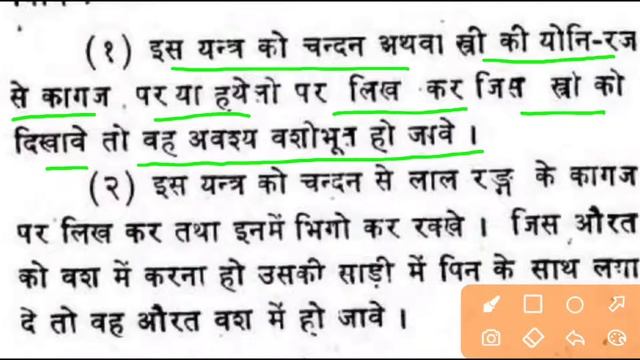 (१) इस यन्त्र को चन्दन अथवा स्त्री की योनि-रज
से कागज पर या हथेली पर लिख कर जिस स्त्री को
दिखावे तो वह अवश्य वशीभूत हो जावे ।
(२) इस यन्त्र को चन्दन से लाल रङ्ग के कागज
पर लिख कर तथा इनमें भिगो कर रक्खे । जिस औरत
को वश में करना हो उसकी साड़ी में पिन के साथ लगा
दे तो वह औरत वश में हो जावे ।